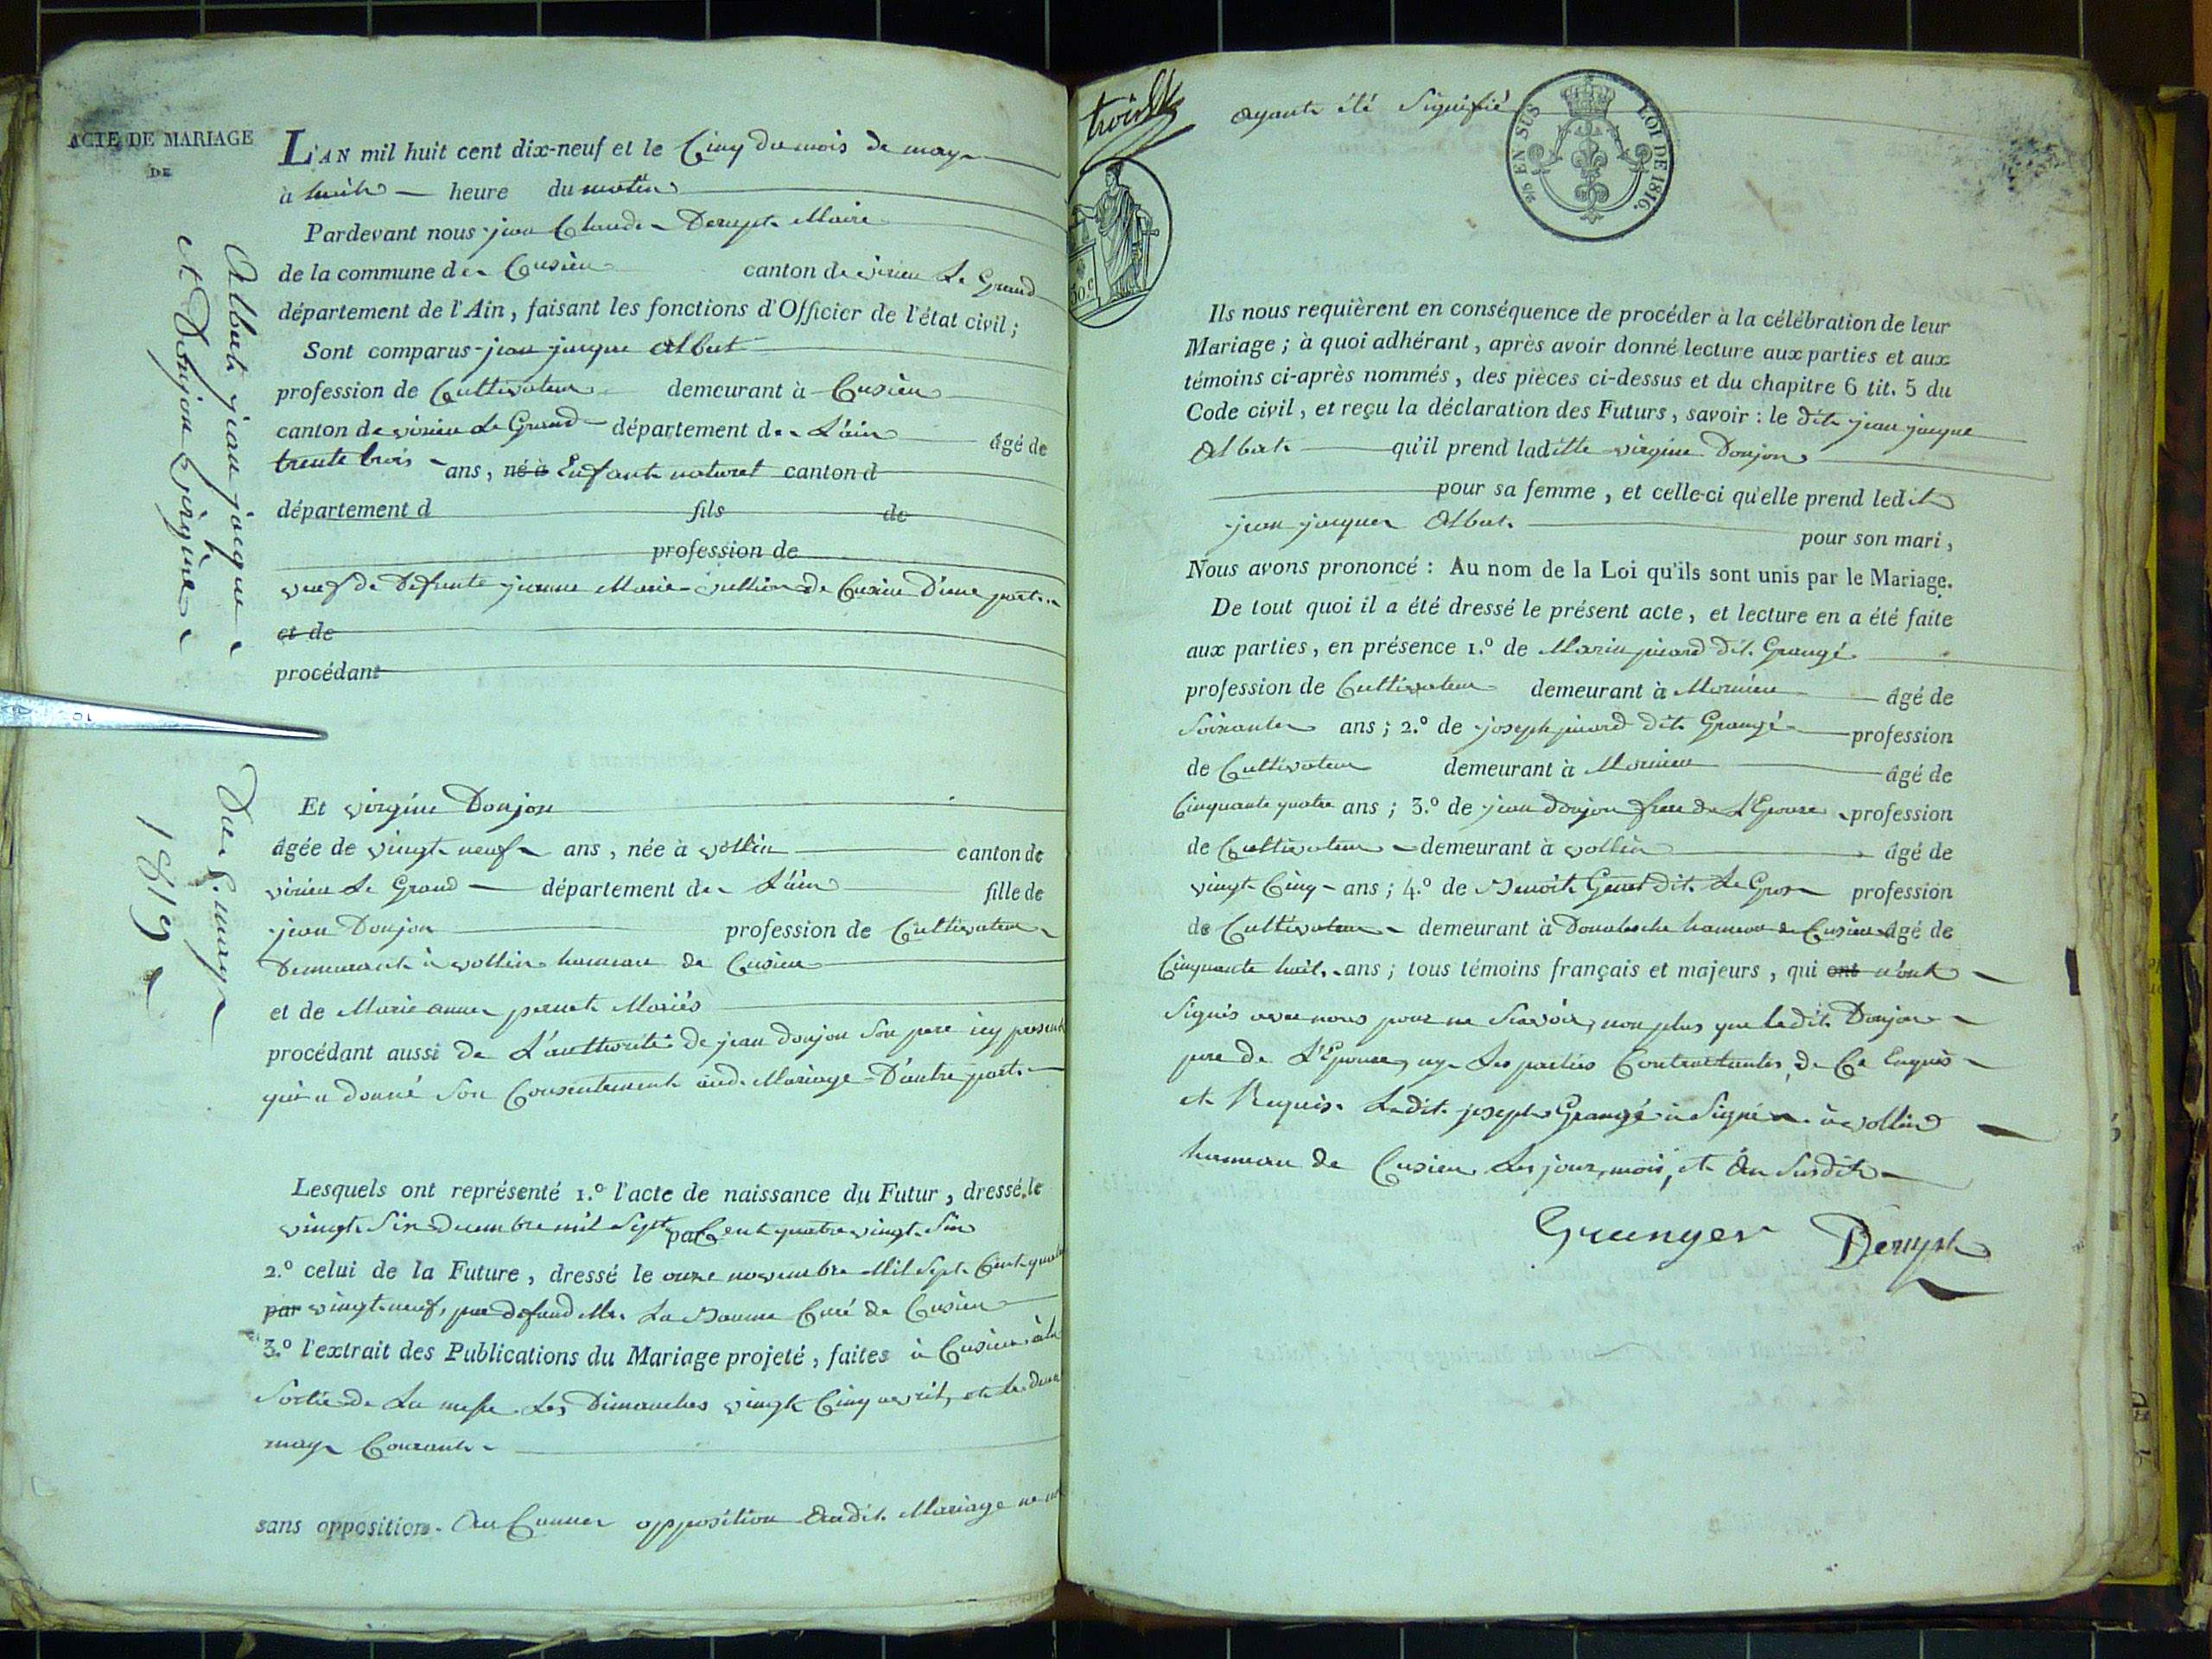 ACTE DE MARIAGE
DE
Albert jean jacque
et Donjon virgine
Du 5. may
1819
L'AN mil huit cent dix-neuf et le Cinq du mois de may
à huit heure du matin
Pardevant nous jean Claude Derupt Maire
de la commune de Cusieu canton de virieu Le Grand
département de l'Ain, faisant les fonctions d'Officier de l'état civil;
Sont comparus jean jacque Albert
profession de Cultivateur demeurant à Cusieu
canton de virieu Le Grand département de L'ain âgé de
trente trois ans, né à Enfant naturel canton d
département d fils de
profession de
veuf de Defunte jeanne Marie de Cusieu D'une part
et de
procédant
Et virgine Donjon
âgée de vingt neuf ans, née à vollin canton de
virieu Le Grand département de L'ain fille de
jean Donjon profession de Cultivateur
Demeurant à vollin hameau de Cusieu
et de Marie anne pernet Mariés
procédant aussi de L'authorité de jean donjon Son pere icy present
qui a donné Son Consentement aud. Mariage D'autre part
Lesquels ont représenté 1.º l'acte de naissance du Futur, dressé le
vingt Six decembre mil Sept par Cent quatre vingt Six
2.º celui de la Future, dressé le onze novembre Mil Sept Cent quatre
par vingt neuf, par defund Mr. La Baume Curé de Cusieu
3.º l'extrait des Publications du Mariage projeté, faites à Cusieu à la
Sortie de La messe Les Dimanches vingt Cinq avril, et le deux
may Courant
sans opposition. Aucunne opposition Audit Mariage ne
trois
ayant été Signifié
2/5 EN SUS
LOI DE 1816.
50.c
Ils nous requièrent en conséquence de procéder à la célébration de leur
Mariage; à quoi adhérant, après avoir donné lecture aux parties et aux
témoins ci-après nommés, des pièces ci-dessus et du chapitre 6 tit. 5 du
Code civil, et reçu la déclaration des Futurs, savoir: le dit jean jacque
Albert qu'il prend laditte virgine Donjon
pour sa femme, et celle-ci qu'elle prend ledit
jean jacques Albert
pour son mari,
Nous avons prononcé: Au nom de la Loi qu'ils sont unis par le Mariage.
De tout quoi il a été dressé le présent acte, et lecture en a été faite
aux parties, en présence 1.º de Marin juvard dit Grangé
profession de Cultivateur demeurant à Mornieu âgé de
Soixante ans; 2.º de joseph juvard dit Grangé profession
de Cultivateur demeurant à Mornieu âgé de
Cinquante quatre ans; 3.º de jean donjon frere de L'Epouse profession
de Cultivateur demeurant à vollin âgé de
vingt Cinq ans; 4.º de Benoit Genet dit Le Gros profession
de Cultivateur demeurant à hameau de Cusieu âgé de
Cinquante huit ans; tous témoins français et majeurs, qui ont n'ont
Signés avec nous pour ne Scavoir, non plus que ledit Donjon
pere de L'Epouse, ny Les parties Contractantes, de Ce Enquis
et Requis. Ledit joseph Grangé à Signé à vollin
hameau de Cusieu Les jour, mois, et An Susdit
Grunger Derupt